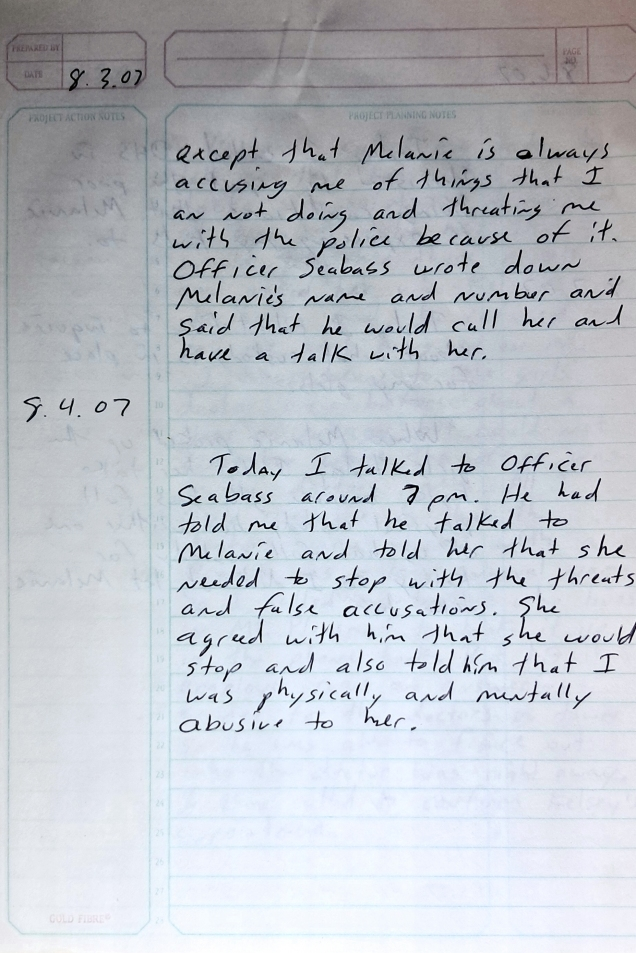 PREPARED BY
DATE
8.3.07
PAGE NO.
PROJECT ACTION NOTES
PROJECT PLANNING NOTES
except that Melanie is always
accusing me of things that I
an not doing and threating me
with the police because of it.
Officer Seabass wrote down
Melanie's name and number and
said that he would call her and
have a talk with her.
8.4.07
Today I talked to Officer
Seabass around 7 pm. He had
told me that he talked to
Melanie and told her that she
needed to stop with the threats
and false accusations. She
agreed with him that she would
stop and also told him that I
was physically and mentally
abusive to her.
GOLD FIBRE®